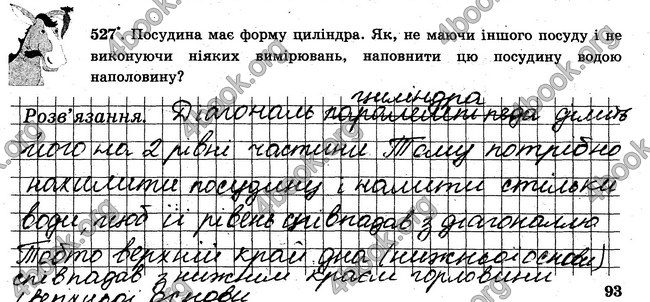 527* Посудина має форму циліндра. Як, не маючи іншого посуду і не
виконуючи ніяких вимірювань, наповнити цю посудину водою
наполовину?
циліндра
Розв'язання. Діагональ паралелепіпеда ділить
його на 2 рівні частини. Тому потрібно
нахилити посудину і налити стільки
води щоб її рівень співпадав з діагоналлю
Тобто верхній край дна (нижньої основи)
співпадав з нижнім краєм горловини
і верхньої основи
93
4book.org